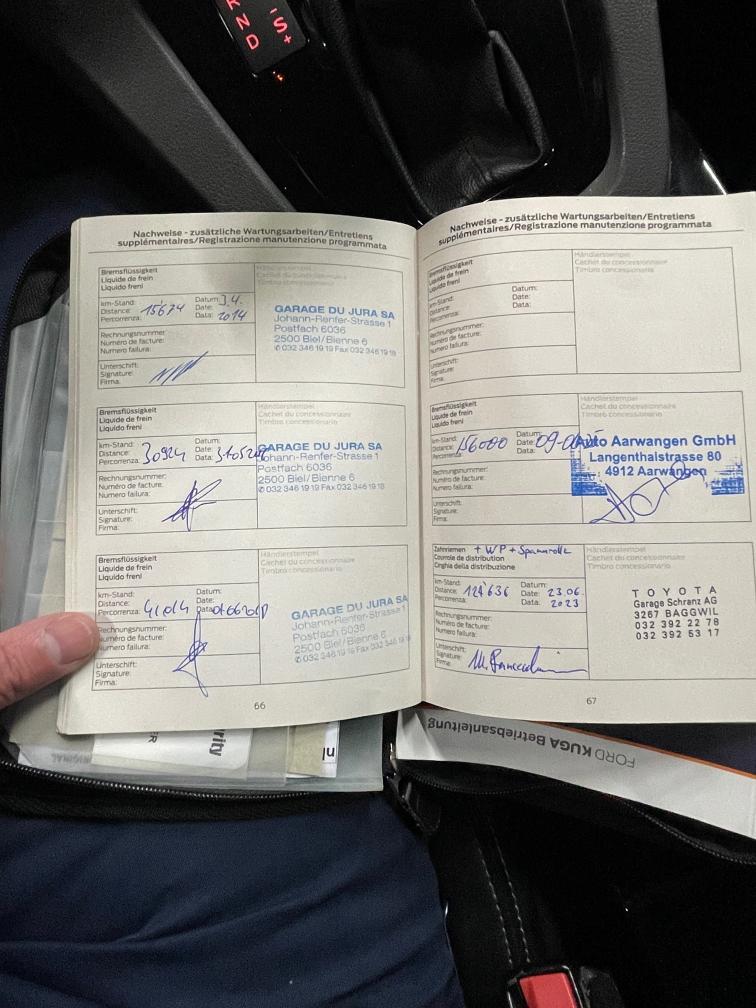 R
N
D
-
S
+
Nachweise - zusätzliche Wartungsarbeiten/Entretiens
supplémentaires/Registrazione manutenzione programmata
Bremsflüssigkeit
Liquide de frein
Liquido freni
km-Stand:
Distance:
Percorrenza:
15'674
Datum:
Date:
Data:
3.4.
2014
Rechnungsnummer:
Numéro de facture:
Numero fallura:
Unterschrift:
Signature:
Firma:
Händlerstempel
Cachet du concessionnaire
Timbro concessionario
GARAGE DU JURA SA
Johann-Renfer-Strasse 1
Postfach 6036
2500 Biel/Bienne 6
✆ 032 346 19 19 Fax 032 346 19 18
Bremsflüssigkeit
Liquide de frein
Liquido freni
km-Stand:
Distance:
Percorrenza:
30924
Datum:
Date:
Data:
Rechnungsnummer:
Numéro de facture:
Numero fallura:
Unterschrift:
Signature:
Firma:
Händlerstempel
Cachet du concessionnaire
Timbro concessionario
GARAGE DU JURA SA
Johann-Renfer-Strasse 1
Postfach 6036
2500 Biel/Bienne 6
✆ 032 346 19 19 Fax 032 346 19 18
Bremsflüssigkeit
Liquide de frein
Liquido freni
km-Stand:
Distance:
Percorrenza:
41014
Datum:
Date:
Data:
Rechnungsnummer:
Numéro de facture:
Numero fallura:
Unterschrift:
Signature:
Firma:
Händlerstempel
Cachet du concessionnaire
Timbro concessionario
GARAGE DU JURA SA
Johann-Renfer-Strasse 1
Postfach 6036
2500 Biel/Bienne 6
✆ 032 346 19 19 Fax 032 346 19 18
66
Nachweise - zusätzliche Wartungsarbeiten/Entretiens
supplémentaires/Registrazione manutenzione programmata
Bremsflüssigkeit
Liquide de frein
Liquido freni
km-Stand:
Distance:
Percorrenza:
Datum:
Date:
Data:
Rechnungsnummer:
Numéro de facture:
Numero fallura:
Unterschrift:
Signature:
Firma:
Händlerstempel
Cachet du concessionnaire
Timbro concessionario
Bremsflüssigkeit
Liquide de frein
Liquido freni
km-Stand:
Distance:
Percorrenza:
156000
Datum:
Date:
Data:
Rechnungsnummer:
Numéro de facture:
Numero fallura:
Unterschrift:
Signature:
Firma:
Händlerstempel
Cachet du concessionnaire
Timbro concessionario
Auto Aarwangen GmbH
Langenthalstrasse 80
4912 Aarwangen
Zahnriemen + WP + Spannrolle
Courroie de distribution
Cinghia della distribuzione
km-Stand:
Distance:
Percorrenza:
124'636
Datum:
Date:
Data:
23.06.
2023
Rechnungsnummer:
Numéro de facture:
Numero fallura:
Unterschrift:
Signature:
Firma:
Händlerstempel
Cachet du concessionnaire
Timbro concessionario
TOYOTA
Garage Schranz AG
3267 BAGGWIL
032 392 22 78
032 392 53 17
67
FORD KUGA Betriebsanleitung
ORIGINAL